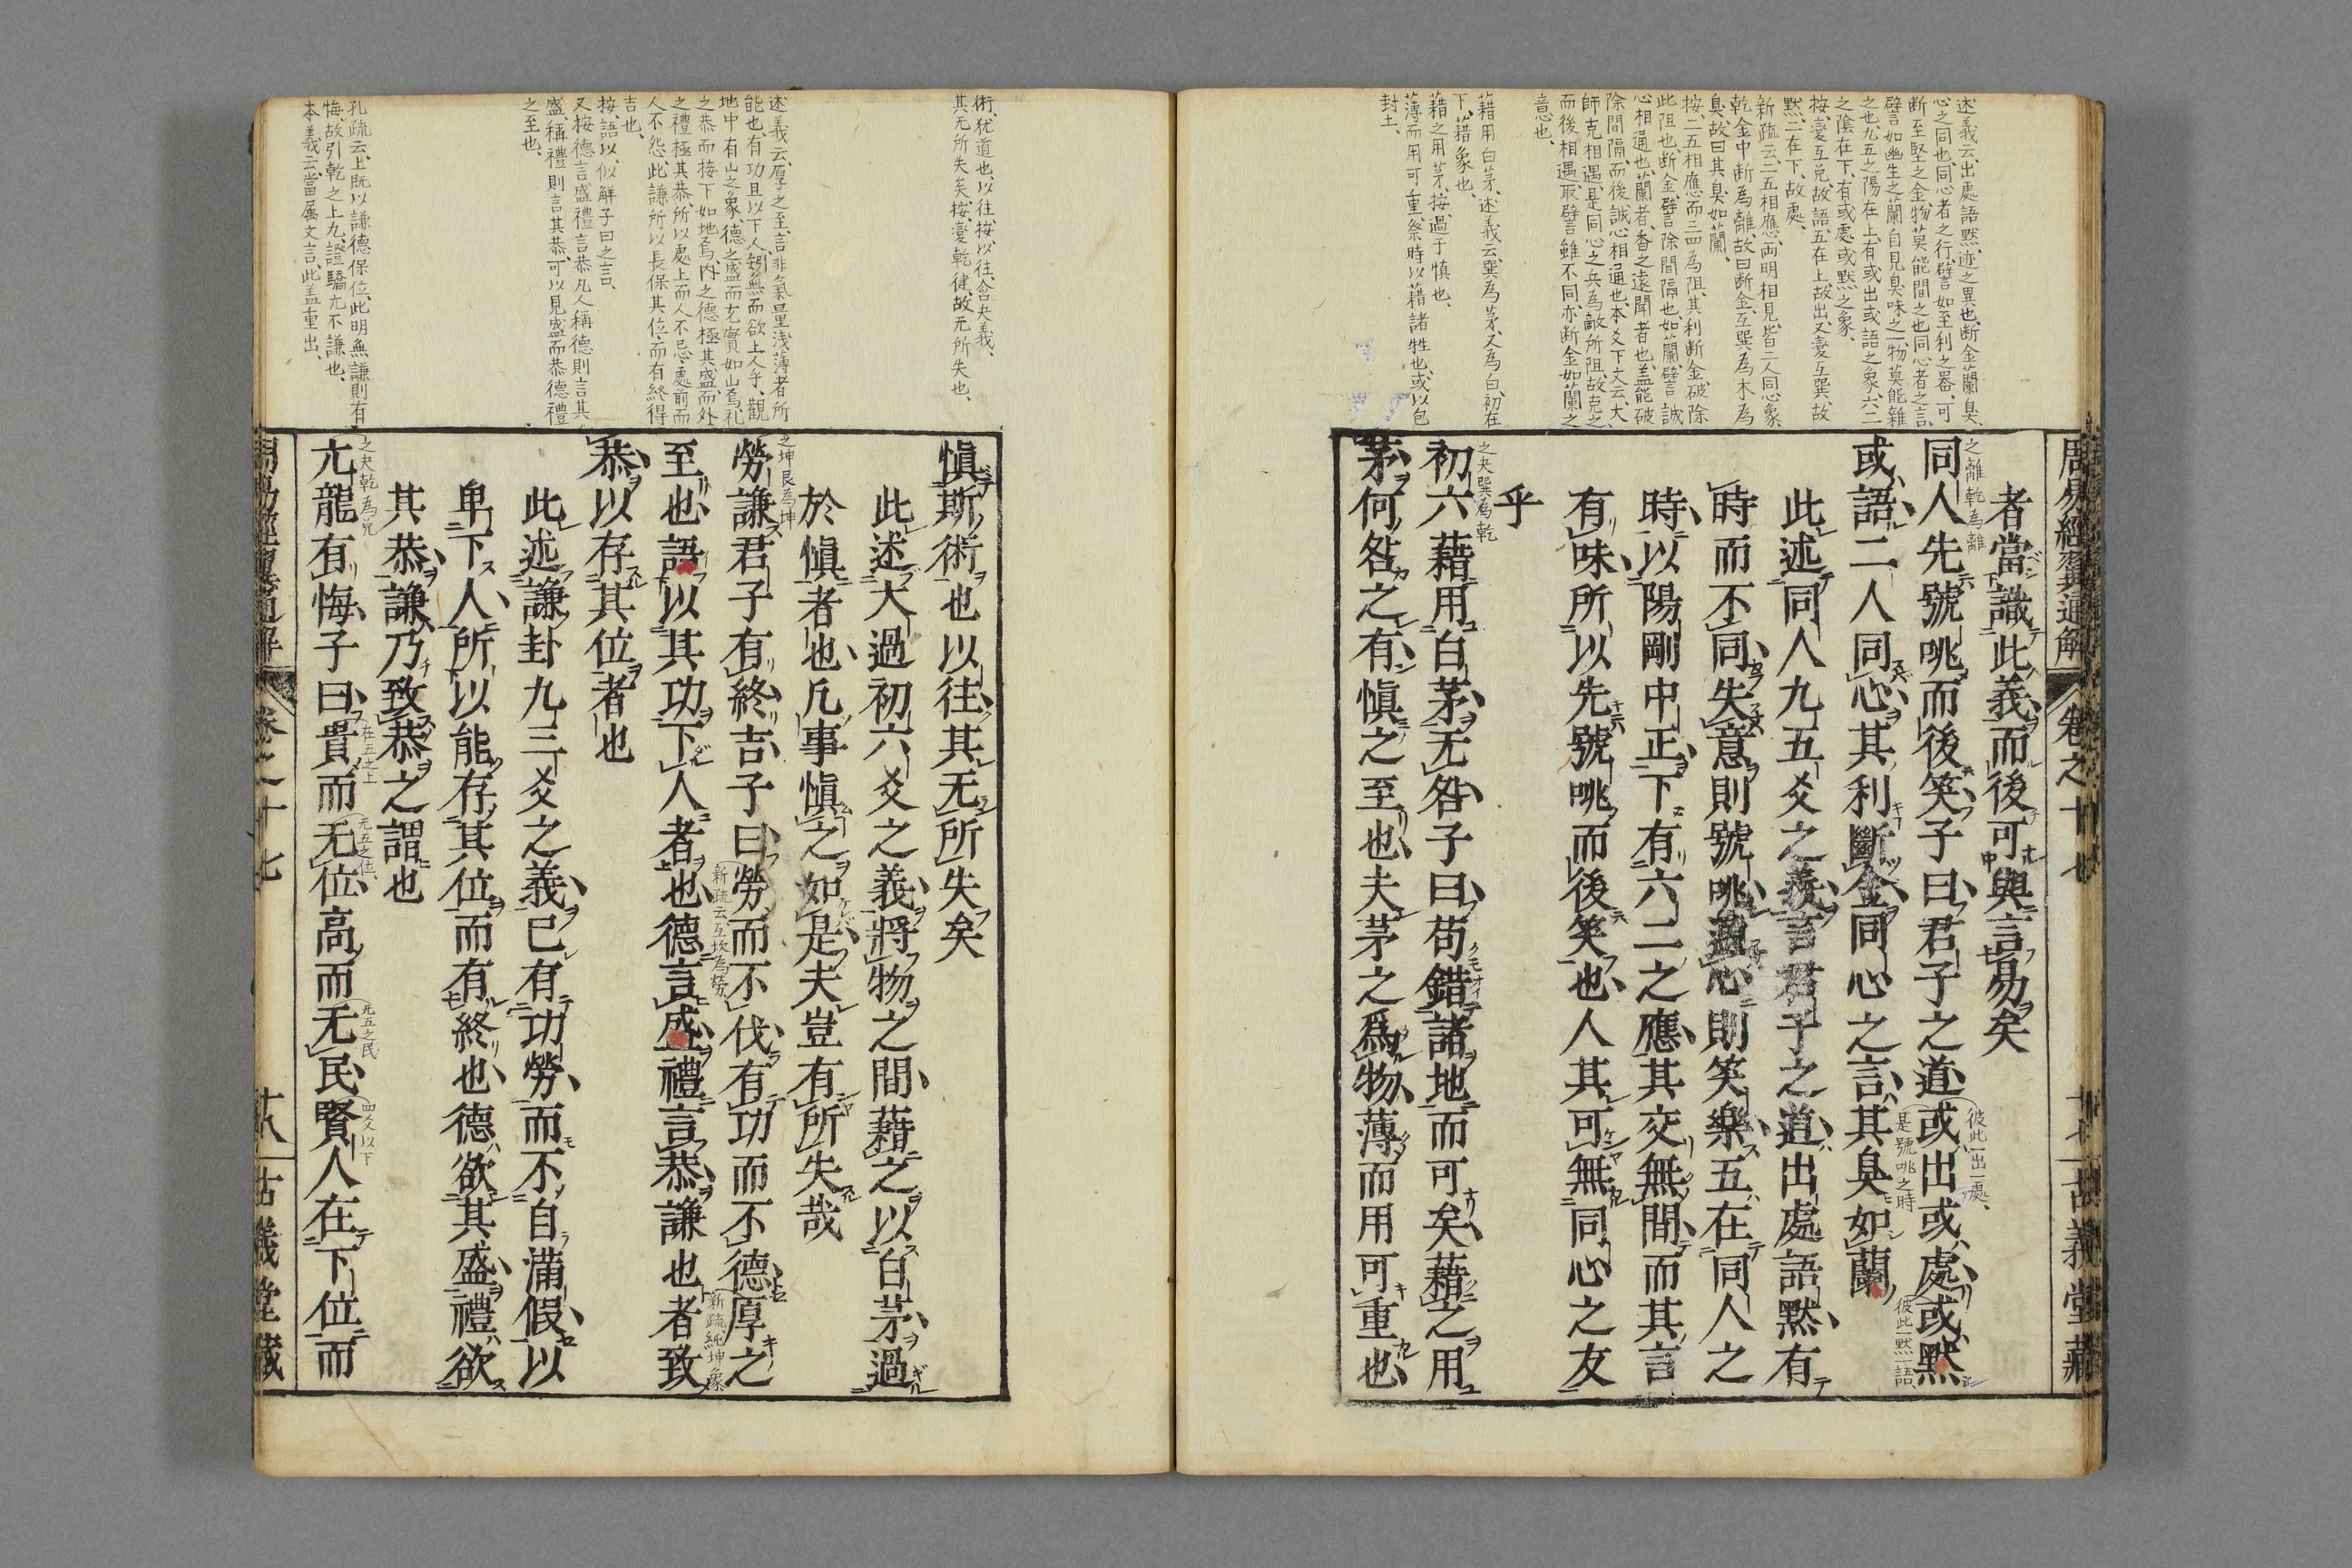 周易經翼通解 卷之十七 古義堂藏
述義云、出處語默、迹之異也、斷金蘭臭、
心之同也、同心者之行、譬言如至利之器、可
断至堅之金物、莫能間之也、同心者之言、
譬言如幽生之蘭、自見臭味之一物、莫能雜
之也、九五之陽在上、有或出或語之象、六二
之陰在下、有或處或黙之象、
按、變互兌、故語、五在上、故出、又變互巽、故
黙、二在下、故處、
新疏云、二五相應、兩明相見、皆二人同心象、
乾金中断為離、故曰断金、互巽為木為
臭、故曰其臭如蘭、
按、二五相應、而三四為阻、其利断金、破除
此阻也、断金、譬言除間隔也、如蘭、譬言誠
心相通也、蘭者、香之遠聞者也、盖能破
除間隔、而後誠心相通也、本爻下文云、大
師克相遇、是同心之兵為敵所阻、故克之
而後相遇、取譬雖不同、亦断金如蘭之
意也、
藉用白茅、述義云、巽為茅、又為白、初在
下、藉象也、
藉之用茅、按、過于慎也、
薄而用可重、祭時以藉諸牲也、或以包
封土、
者當識此義而後可與言易矣
之離乾為離
同人先號咷而後笑子曰君子之道或出或處或默
彼此一出一處、
是號咷之時
彼此一黙一語、
或語二人同心其利斷金同心之言其臭如蘭
此述同人九五爻之義言君子之道出處語默有
時而不同失意則號咷適心則笑樂五在同人之
時以陽剛中正下有六二之應其交無間而其言
有味所以先號咷而後笑也人其可無同心之友
乎
之夬巽為乾
初六藉用白茅无咎子曰苟錯諸地而可矣藉之用
茅何咎之有慎之至也夫茅之爲物薄而用可重也
術、猶道也、以往、按、以往、含夬義、
其无所失矣、按、變乾健、故无所失也、
述義云、厚之至、言非氣量浅薄者所
能也、有功且以下人、矧無而欲上人乎、觀
地中有山之象、德之盛而充實如山焉、礼
之恭而接下如地焉、内之德極其盛、而外
之禮極其恭、所以處上而人不忌、處前而
人不怨、此謙所以長保其位、而有終得
吉也、
按、語以、似解子曰之言、
又按、德言盛、禮言恭、凡人稱德則言其
盛、稱禮則言其恭、可以見盛而恭德禮
之至也、
孔疏云、上既以謙德保位、此明無謙則有
悔、故引乾之上九、證驕亢不謙也、
本義云、當属文言、此盖重出、
慎斯術也以往其无所失矣
此述大過初六爻之義將物之間藉之以白茅過
於慎者也凡事慎之如是夫豈有所失哉
之坤艮為坤
勞謙君子有終吉子曰勞而不伐有功而不德厚之
新疏云互坎為勞
新疏純坤象
至也語以其功下人者也德言盛禮言恭謙也者致
恭以存其位者也
此述謙卦九三爻之義已有功勞而不自滿假以
卑下人所以能存其位而有終也德欲其盛禮欲
其恭謙乃致恭之謂也
之夬乾為兌
亢龍有悔子曰貴而无位高而无民賢人在下位而
在五之上
无五之位
无五之民
四爻以下
周易經翼通解 卷之十七 十八 古義堂藏